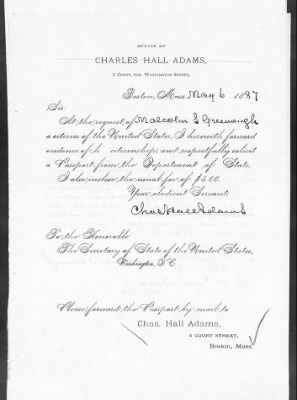 OFFICE OF
CHARLES HALL ADAMS,
5 COURT, COR. WASHINGTON STREET,
Boston, Mass. May 6 1887
Sir:
At the request of Malcolm S Greenough
a citizen of the United States, I herewith forward
evidence of h citizenship, and respectfully solicit
a Passport from the Department of State.
I also inclose the usual fee of $5.00.
Your obedient Servant,
Chas Hall Adams
To the Honorable
The Secretary of State of the United States,
Washington, D.C.
Please forward the Passport by mail to
Chas. Hall Adams,
5 COURT STREET,
Boston, Mass.